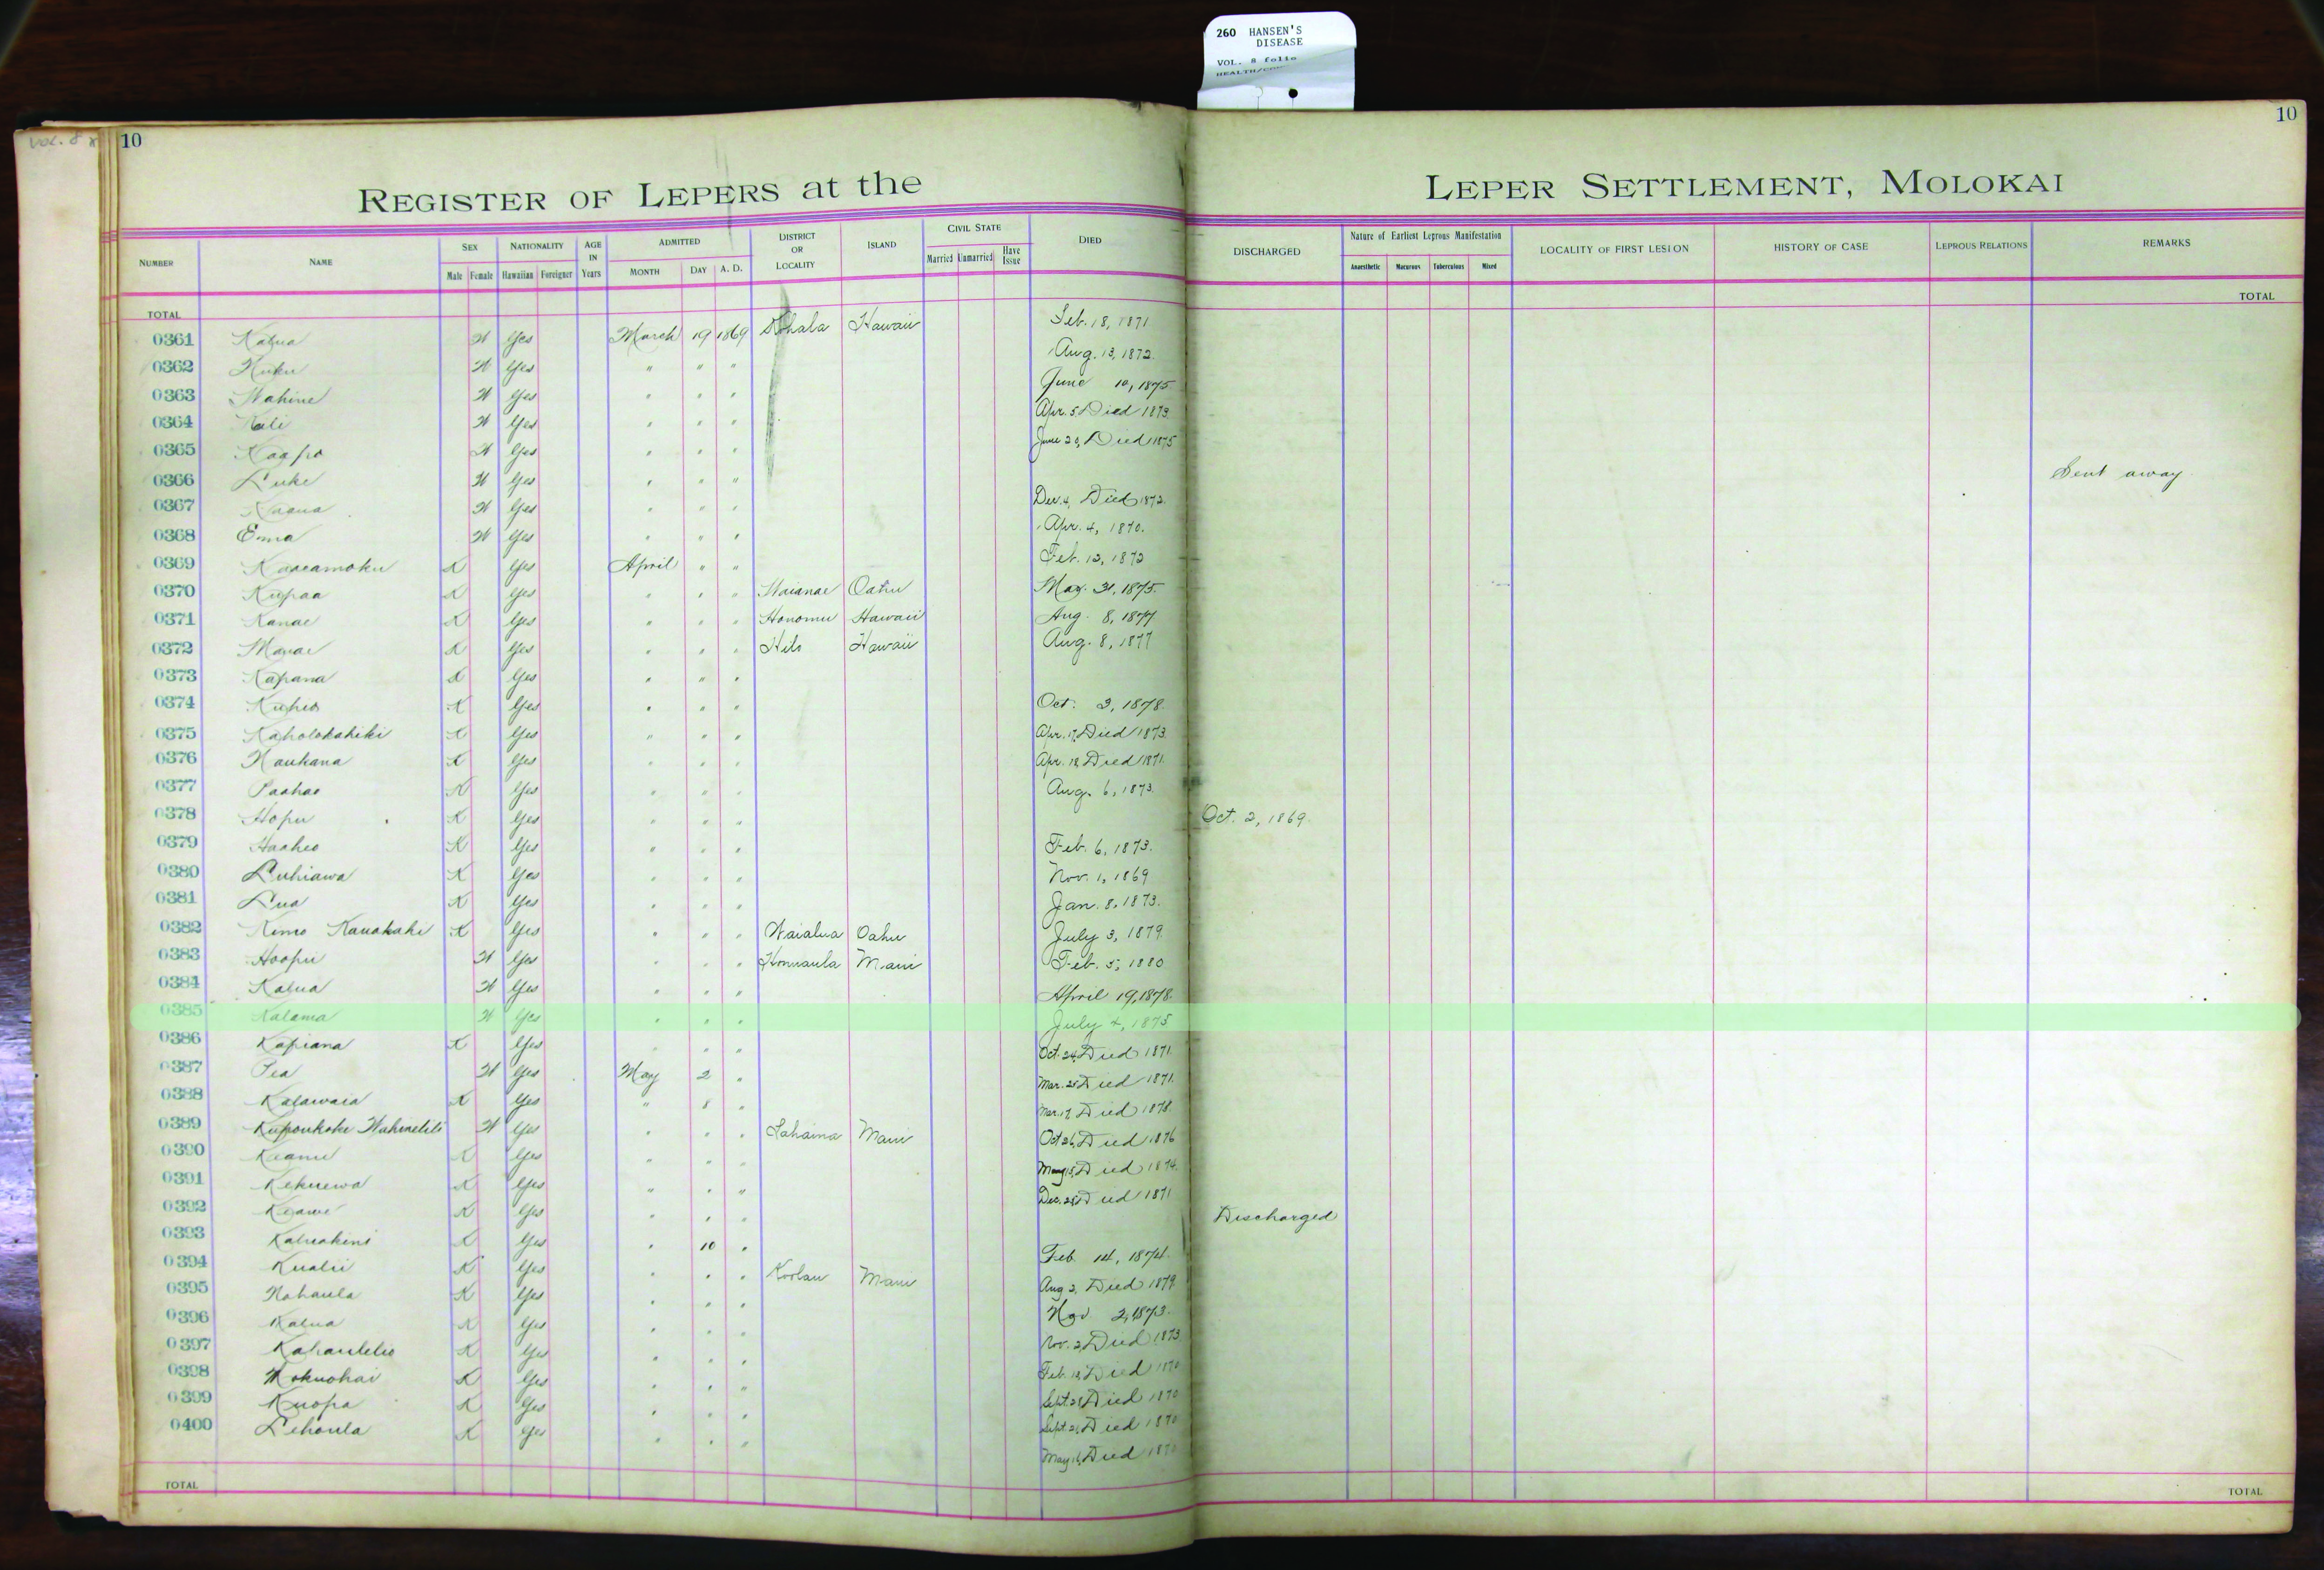 260 HANSEN'S
DISEASE
VOL. 8 folio
VOL. 8
10
10
REGISTER OF LEPERS at the LEPER SETTLEMENT, MOLOKAI
NUMBER NAME SEX Male Female NATIONALITY Hawaiian Foreigner AGE IN Years ADMITTED MONTH DAY A. D. DISTRICT OR LOCALITY ISLAND CIVIL STATE Married Unmarried Have Issue DIED DISCHARGED Nature of Earliest Leprous Manifestation Anaesthetic Macurous Tuberculous Mixed LOCALITY OF FIRST LESION HISTORY OF CASE LEPROUS RELATIONS REMARKS
TOTAL TOTAL
0361 Kalua W Yes March 19 1869 Kohala Hawaii Feb. 18, 1871
0362 W Yes " " " Aug. 13, 1872.
0363 Wahine W Yes " " " June 10, 1875
0364 Kali W Yes " " " Apr. 5 Died 1873.
0365 Kaapo W Yes " " " June 29, Died 1875
0366 Luke W Yes " " " Sent away
0367 W Yes " " " Dec. 4, Died 1872.
0368 Emma W Yes " " " Apr. 4, 1870.
0369 Kaaeamoku K Yes April " " Feb. 12, 1872
0370 Kupaa K Yes " " " Waianae Oahu May. 31, 1875.
0371 Kanae K Yes " " " Honomu Hawaii Aug. 8, 1877
0372 K Yes " " " Hilo Hawaii Aug. 8, 1877
0373 Kapana K Yes " " "
0374 Kuheo K Yes " " " Oct. 3, 1878.
0375 Kaholokahiki K Yes " " " Apr. 17, Died 1873.
0376 Naukana K Yes " " " Apr. 18, Died 1871.
0377 Paahao K Yes " " " Aug. 6, 1873.
0378 Hopu K Yes " " " Oct. 2, 1869.
0379 Haaheo K Yes " " " Feb. 6, 1873.
0380 Luhiawa K Yes " " " Nov. 1, 1869
0381 Lua K Yes " " " Jan. 8, 1873.
0382 Kimo Kauakahi K Yes " " " Waialua Oahu July 3, 1879.
0383 Hoopii W Yes " " " Honuaula Maui Feb. 5, 1880
0384 Kalua W Yes " " " April 19, 1878.
0385 Kalama W Yes " " " July 4, 1875
0386 Kapiana K Yes " " " Oct. 24, Died 1871.
0387 Pea W Yes May 2 " Mar. 25, Died 1871.
0388 Kalawaia K Yes " 8 " Mar. 17, Died 1878.
0389 W Yes " " " Lahaina Maui Oct 26, Died 1876
0390 Keanu K Yes " " " May 15, Died 1874.
0391 Kekuewa K Yes " " " Dec. 28, Died 1871
0392 Keawe K Yes " " " Discharged
0393 Kaluakini K Yes " 10 " Feb. 14, 1874.
0394 Kualii K Yes " " " Koolau Maui Aug 2, Died 1879.
0395 Nahaula K Yes " " " Nov 2, 1873.
0396 Kalua K Yes " " " Nov. 2, Died 1873
0397 Kahaulelio K Yes " " " Feb. 18, Died 1870
0398 Mokuohai K Yes " " " Sept. 28, Died 1870
0399 Kuopa K Yes " " " Sept. 21, Died 1870
0400 Lehoula K Yes " " " May 16, Died 1870
TOTAL TOTAL